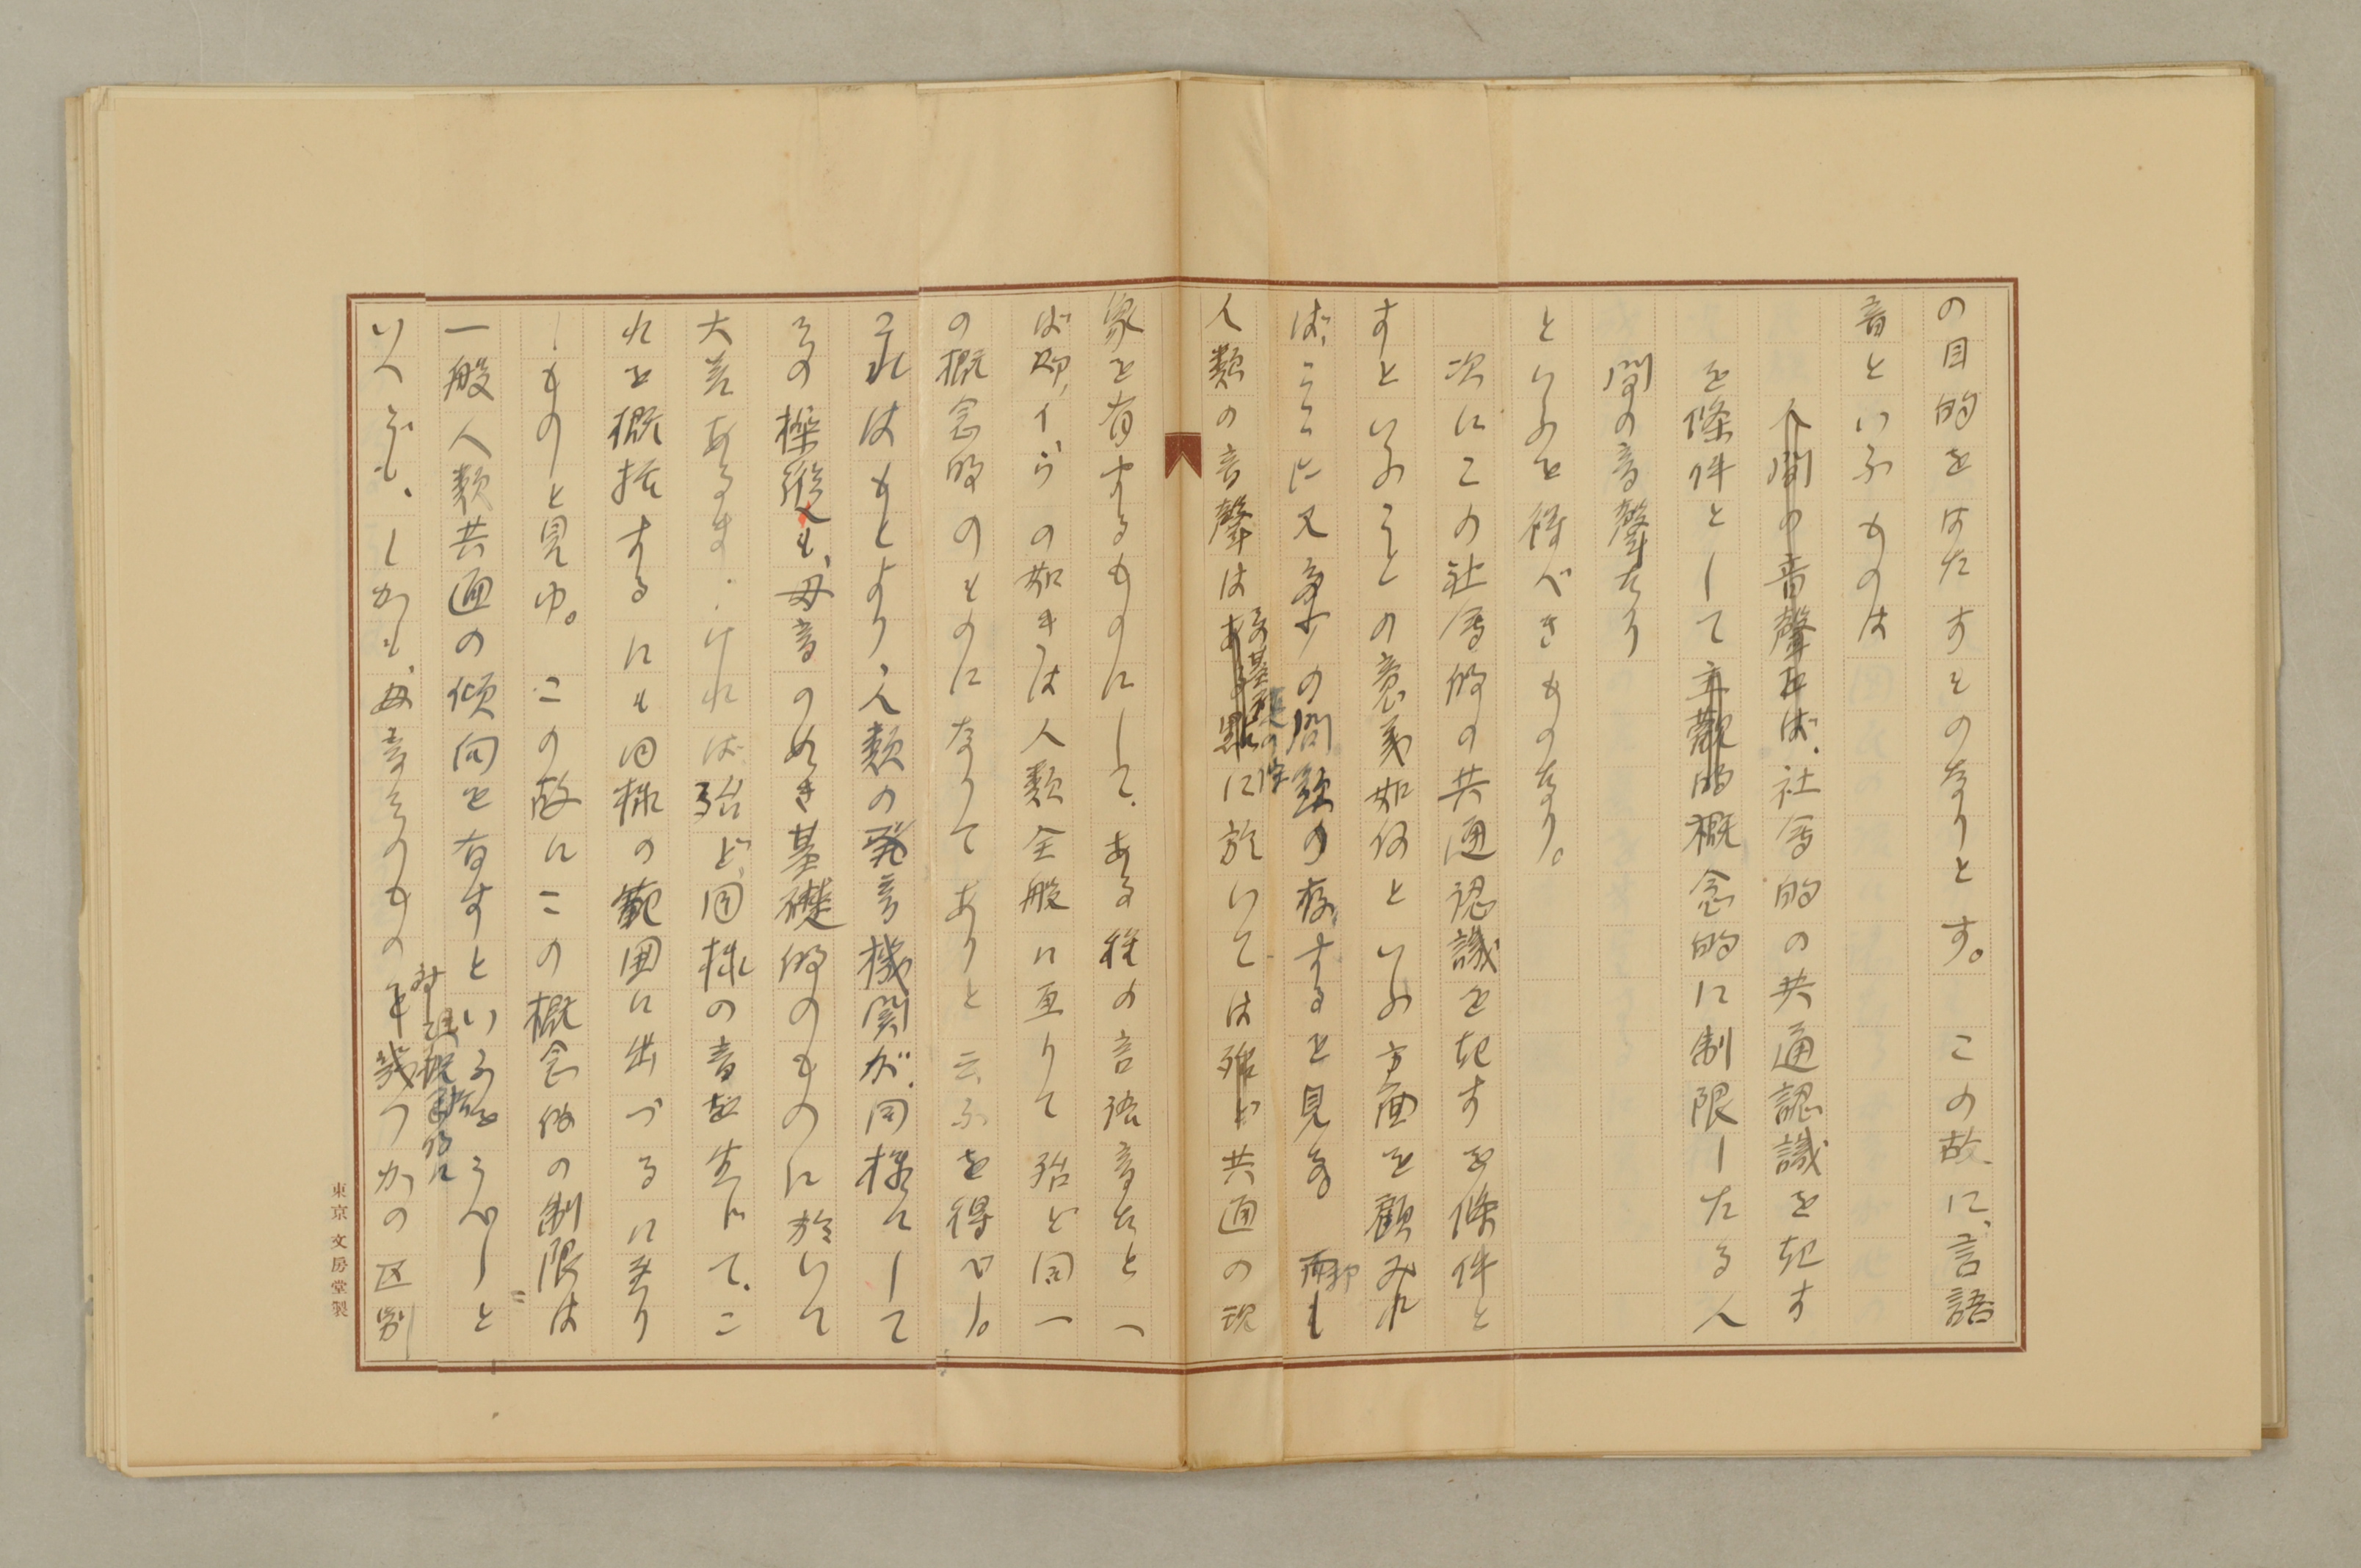 の目的をはたすものなりとす。この故に、言語
音といふものは
人間の音聲をば、社会的の共通認識を起す
を條件として主觀的概念的に制限したる人
間の音聲なり
といふを得べきものなり。
次にこの社会的の共通認識を起すを條件と
すといふことの意義如何といふ方面を顧みれ
ば、ここに又多少の問題の存するを見る。而も
人類の音聲はその基礎の点に於いては殆ど共通の現
象を有するものにして、ある種の言語音たと
ば即、イ、ウの如きは人類全般に亘りて殆ど同一
の概念的のものになりてありと云ふを得べし。
これはもとより人類の発音機関が、同様にして
その操縦も、母音の如き基礎的のものに於いて
大差あるまじければ殆ど同様の音を生じて、こ
れを概括するにも同様の範囲に出づるに至り
しものと見ゆ。この故にこの概念的の制限は
一般人類共通の傾向を有すといふをうべしと
いへども、しかも、母音そのものを幾つかの区別
東京文房堂製